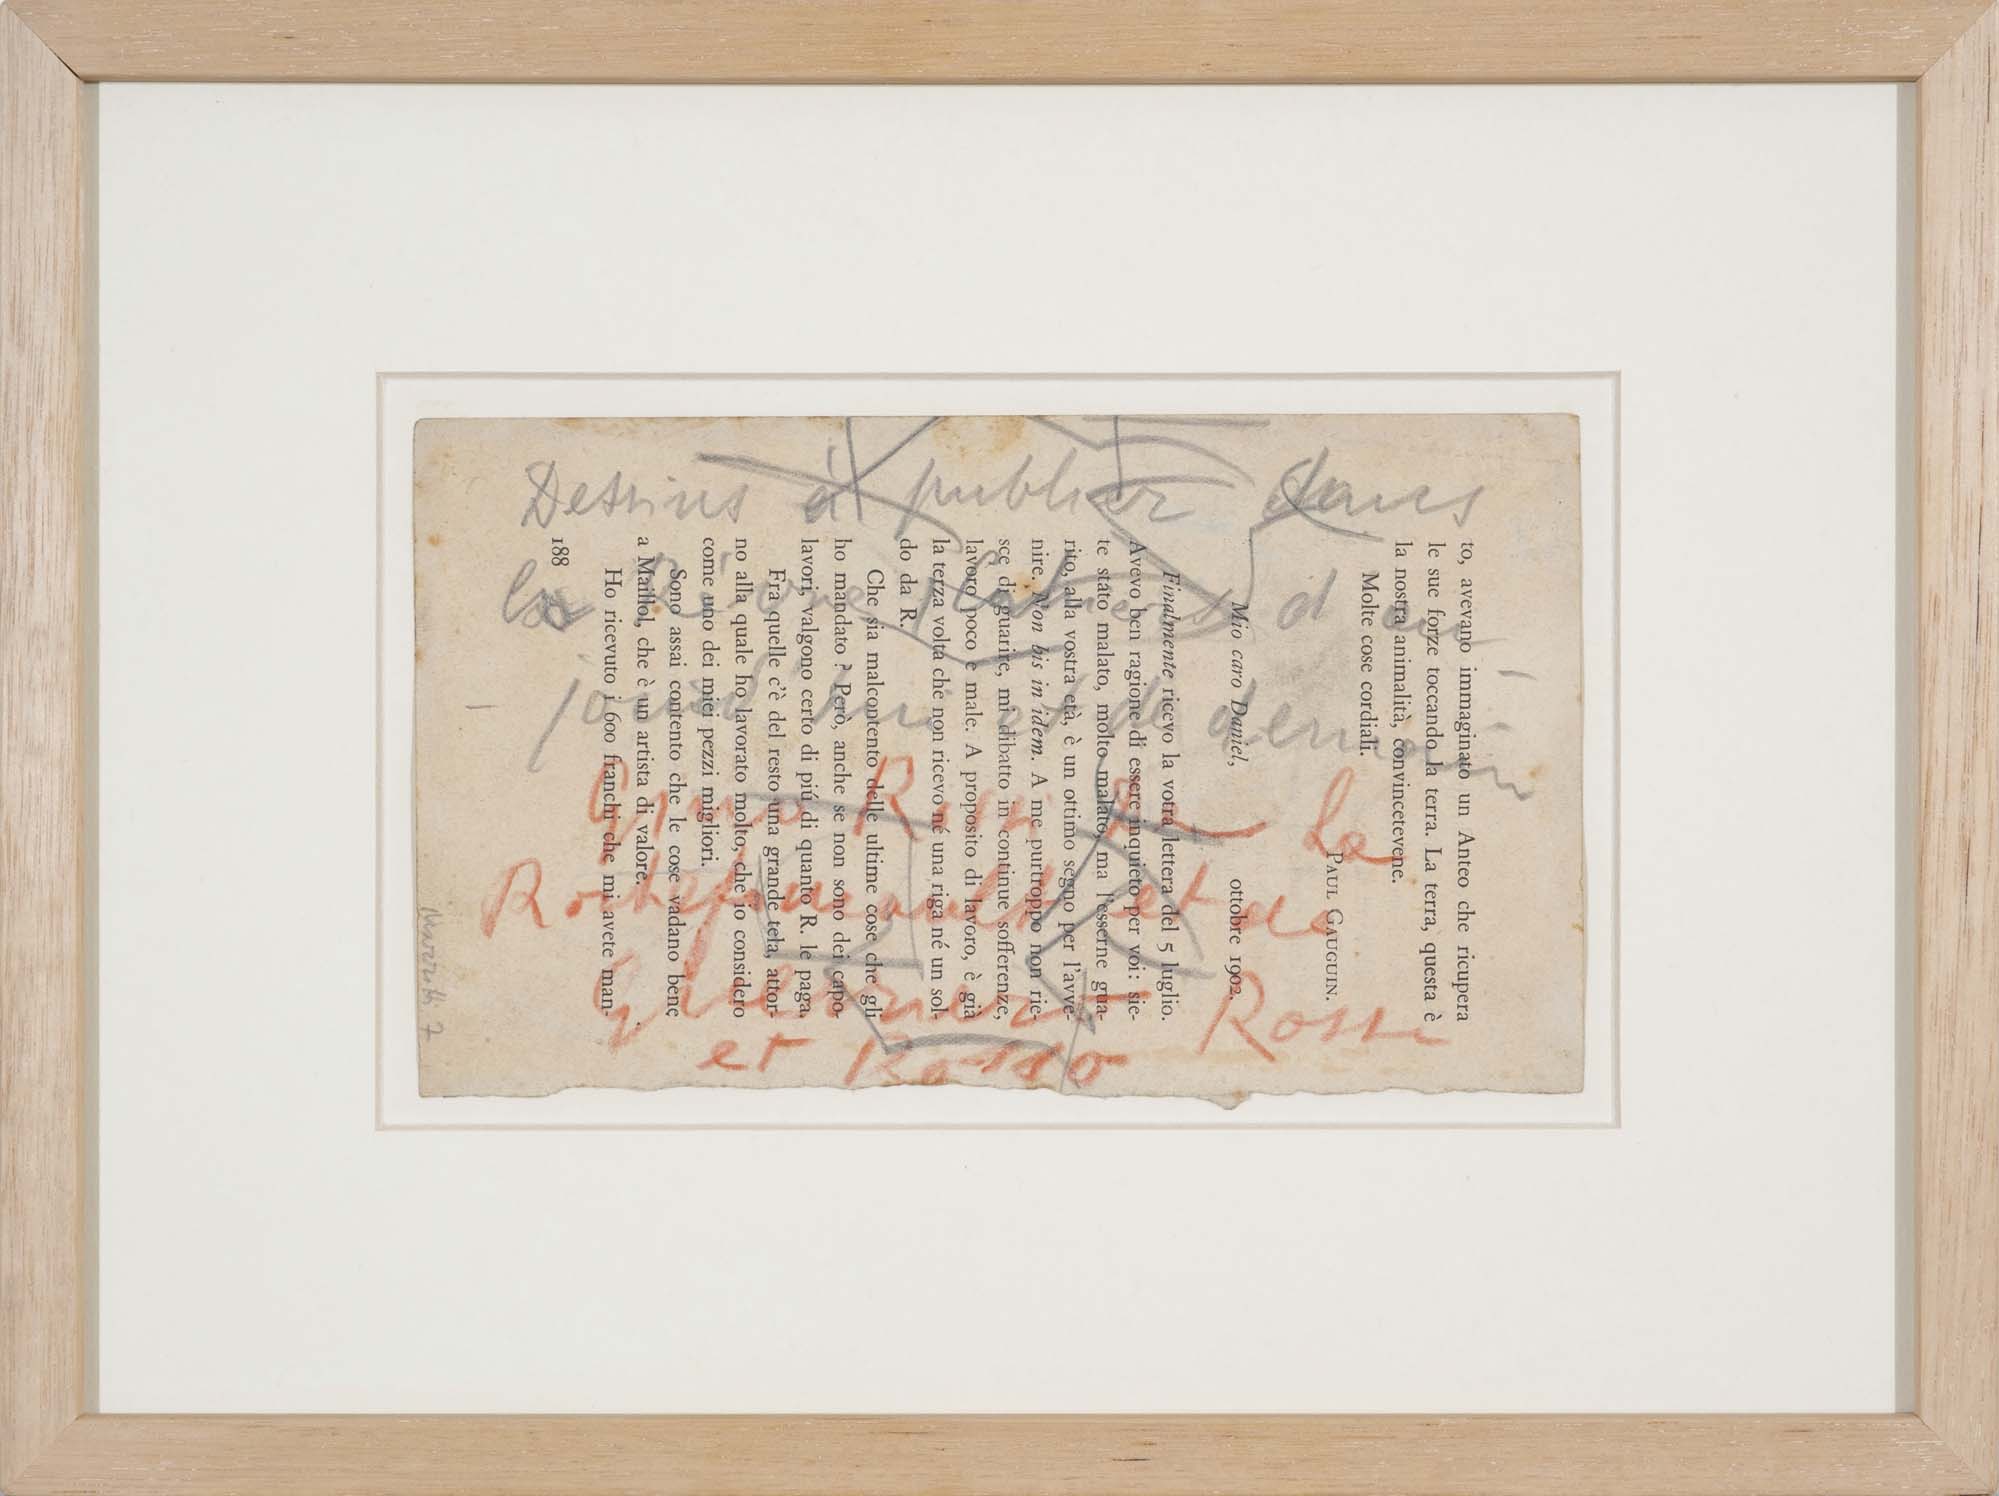 to, avevano immaginato un Anteo che ricupera
le sue forze toccando la terra. La terra, questa è
la nostra animalità, convincetevene.
Molte cose cordiali.
PAUL GAUGUIN.
ottobre 1902.
Mio caro Daniel,
Finalmente ricevo la votra lettera del 5 luglio.
Avevo ben ragione di essere inquieto per voi: sie-
te stato malato, molto malato, ma l'esserne gua-
rito, alla vostra età, è un ottimo segno per l'avve-
nire. Non bis in idem. A me purtroppo non rie-
sce di guarire, mi dibatto in continue sofferenze,
lavoro poco e male. A proposito di lavoro, è già
la terza volta che non ricevo né una riga né un sol-
do da R.
Che sia malcontento delle ultime cose che gli
ho mandato? Però, anche se non sono dei capo-
lavori, valgono certo di piú di quanto R. le paga.
Fra quelle c'è del resto una grande tela, attor-
no alla quale ho lavorato molto, che io considero
come uno dei miei pezzi migliori.
Sono assai contento che le cose vadano bene
a Maillol, che è un artista di valore.
Ho ricevuto i 600 franchi che mi avete man-
188
Dessins à publier dans
la d'au
jourd'hui et de demain
de La
Rochefoucault et de
Rossi
et Rosso